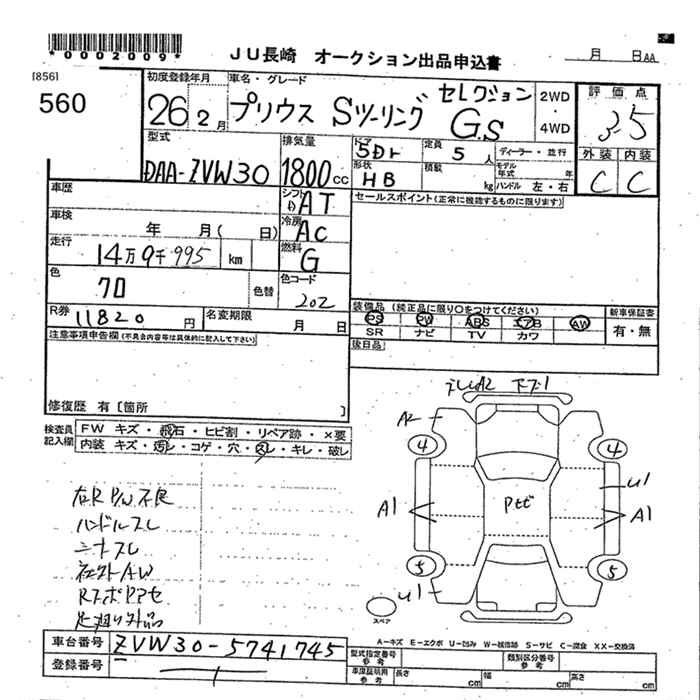 *0002009*
JU長崎 オークション出品申込書
月 日 AA
[856]
560
初度登録年月
26 2月
車名・グレード
プリウス Sツーリング セレクション G.S
2WD
・
4WD
評価点
3.5
外装 内装
C C
型式
DAA-ZVW30
排気量
1800cc
ドア
5Dr
形状
HB
定員
5人
積載
kg
ディーラー・並行
モデル年式 年
ハンドル 左・右
車歴
シフト
AT
セールスポイント(正常に機能するものに限ります)
車検
年 月( 日)
冷房
AC
走行
14万9千995 km
燃料
G
色
色替
色コード
202
R券
11820円
名変期限
月 日
装備品(純正品に限り○をつけてください)
PS PW ABS エアB AW
SR ナビ TV カワ
新車保証書
有・無
後日品
注意事項申告欄(不具合内容等は具体的に記入して下さい)
修復歴 有〔箇所 〕
検査員記入欄
FW キズ・飛石・ヒビ割・リペア跡・×要
内装 キズ・汚レ・コゲ・穴・スレ・キレ・破レ
右R P/W不良
ハンドルスレ
シートスレ
社外AW
足廻り外品
A2
4
4
A1
Pセビ
U1
A1
5
5
U1
スペア
A-キズ E-エクボ U-凹み W-補修跡 S-サビ C-腐食 XX-交換済
車台番号
ZVW30-5741745
登録番号
型式指定番号
参考
類別区分番号
参考
車庫証明用
参考
長さ cm
幅 cm
高さ cm